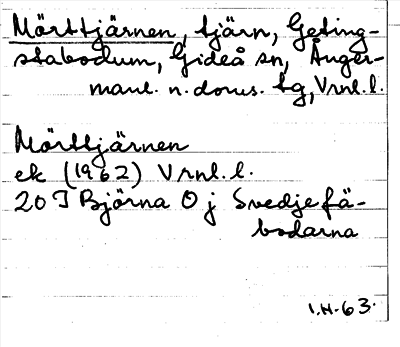 Mörttjärnen, tjärn, Geting-
stabodum, Gideå sn, Ånger-
manl. n. doms. tg, Vrnl. l.
Mörttjärnen
ek (1962) Vrnl. l.
20 I Björna O j Svedjefä-
bodarna
I.H.63.